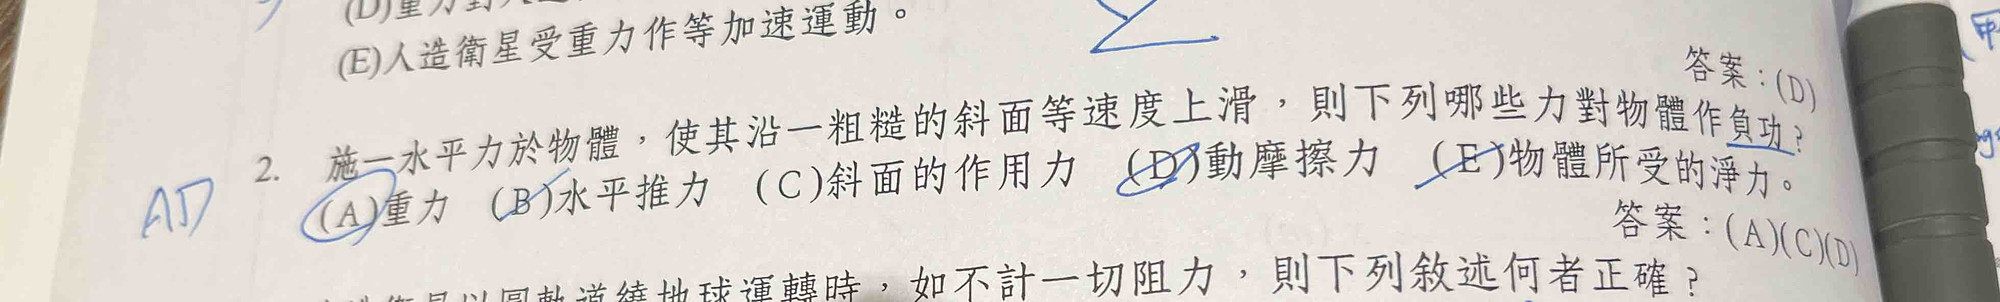 (D)重力對人
(E)人造衛星受重力作等加速運動。
答案：(D)
2. 施一水平力於物體，使其沿一粗糙的斜面等速度上滑，則下列哪些力對物體作負功？
AD
(A)重力 (B)水平推力 (C)斜面的作用力 (D)動摩擦力 (E)物體所受的淨力。
答案：(A)(C)(D)
衛星以圓軌道繞地球運轉時，如不計一切阻力，則下列敘述何者正確？